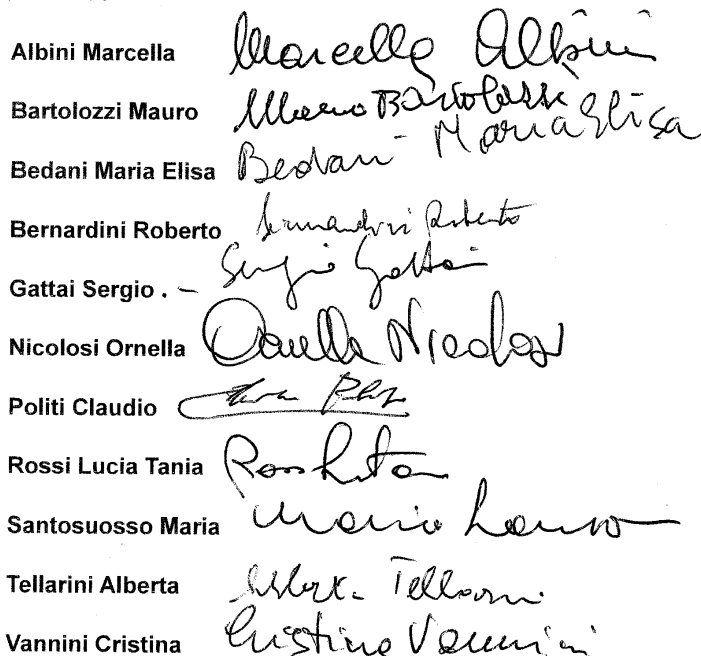 Albini Marcella Marcella Albini
Bartolozzi Mauro Mauro Bartolozzi
Bedani Maria Elisa Bedani Maria Elisa
Bernardini Roberto Bernardini Roberto
Gattai Sergio . – Sergio Gattai
Nicolosi Ornella Ornella Nicolosi
Politi Claudio
Rossi Lucia Tania Rossi
Santosuosso Maria Maria
Tellarini Alberta Alberta Tellarini
Vannini Cristina Cristina Vannini